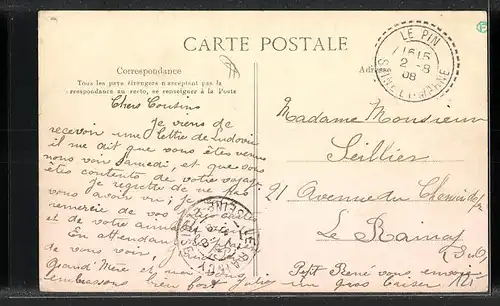 CARTE POSTALE
Correspondance
Tous les pays étrangers n'acceptant pas la
correspondance au recto, se renseigner à la Poste
Adresse
LE PIN
2 -8
08
SEINE-ET-MARNE
Chers Cousins
Je viens de
recevoir une lettre de Ludovic
il me dit que vous êtes venus
nous voir Samedi, et que vous
êtes contents de votre voyage
Je regrette de ne pas
vous avoir vu; je
remercie de vos jolies cartes
et de votre
En attendant
de vous voir,
Grand Mère et moi vous
embrassons bien fort
Madame Monsieur
Seillier
21 Avenue du Chemin de fer
Le Raincy
(S&O)
Petit René vous envoie
un gros baiser
LE RAINCY